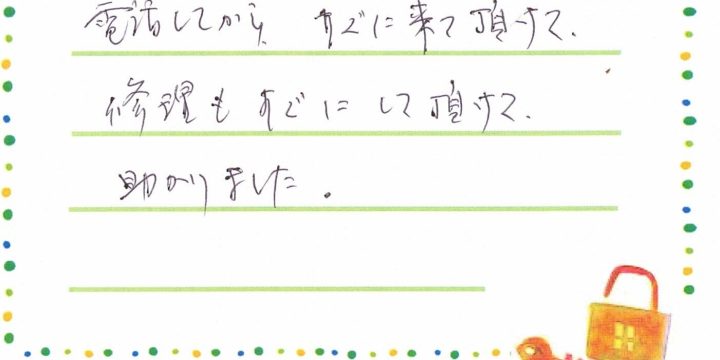 電話してから、すぐに来て頂けて、
修理もすぐにして頂けて、
助かりました。